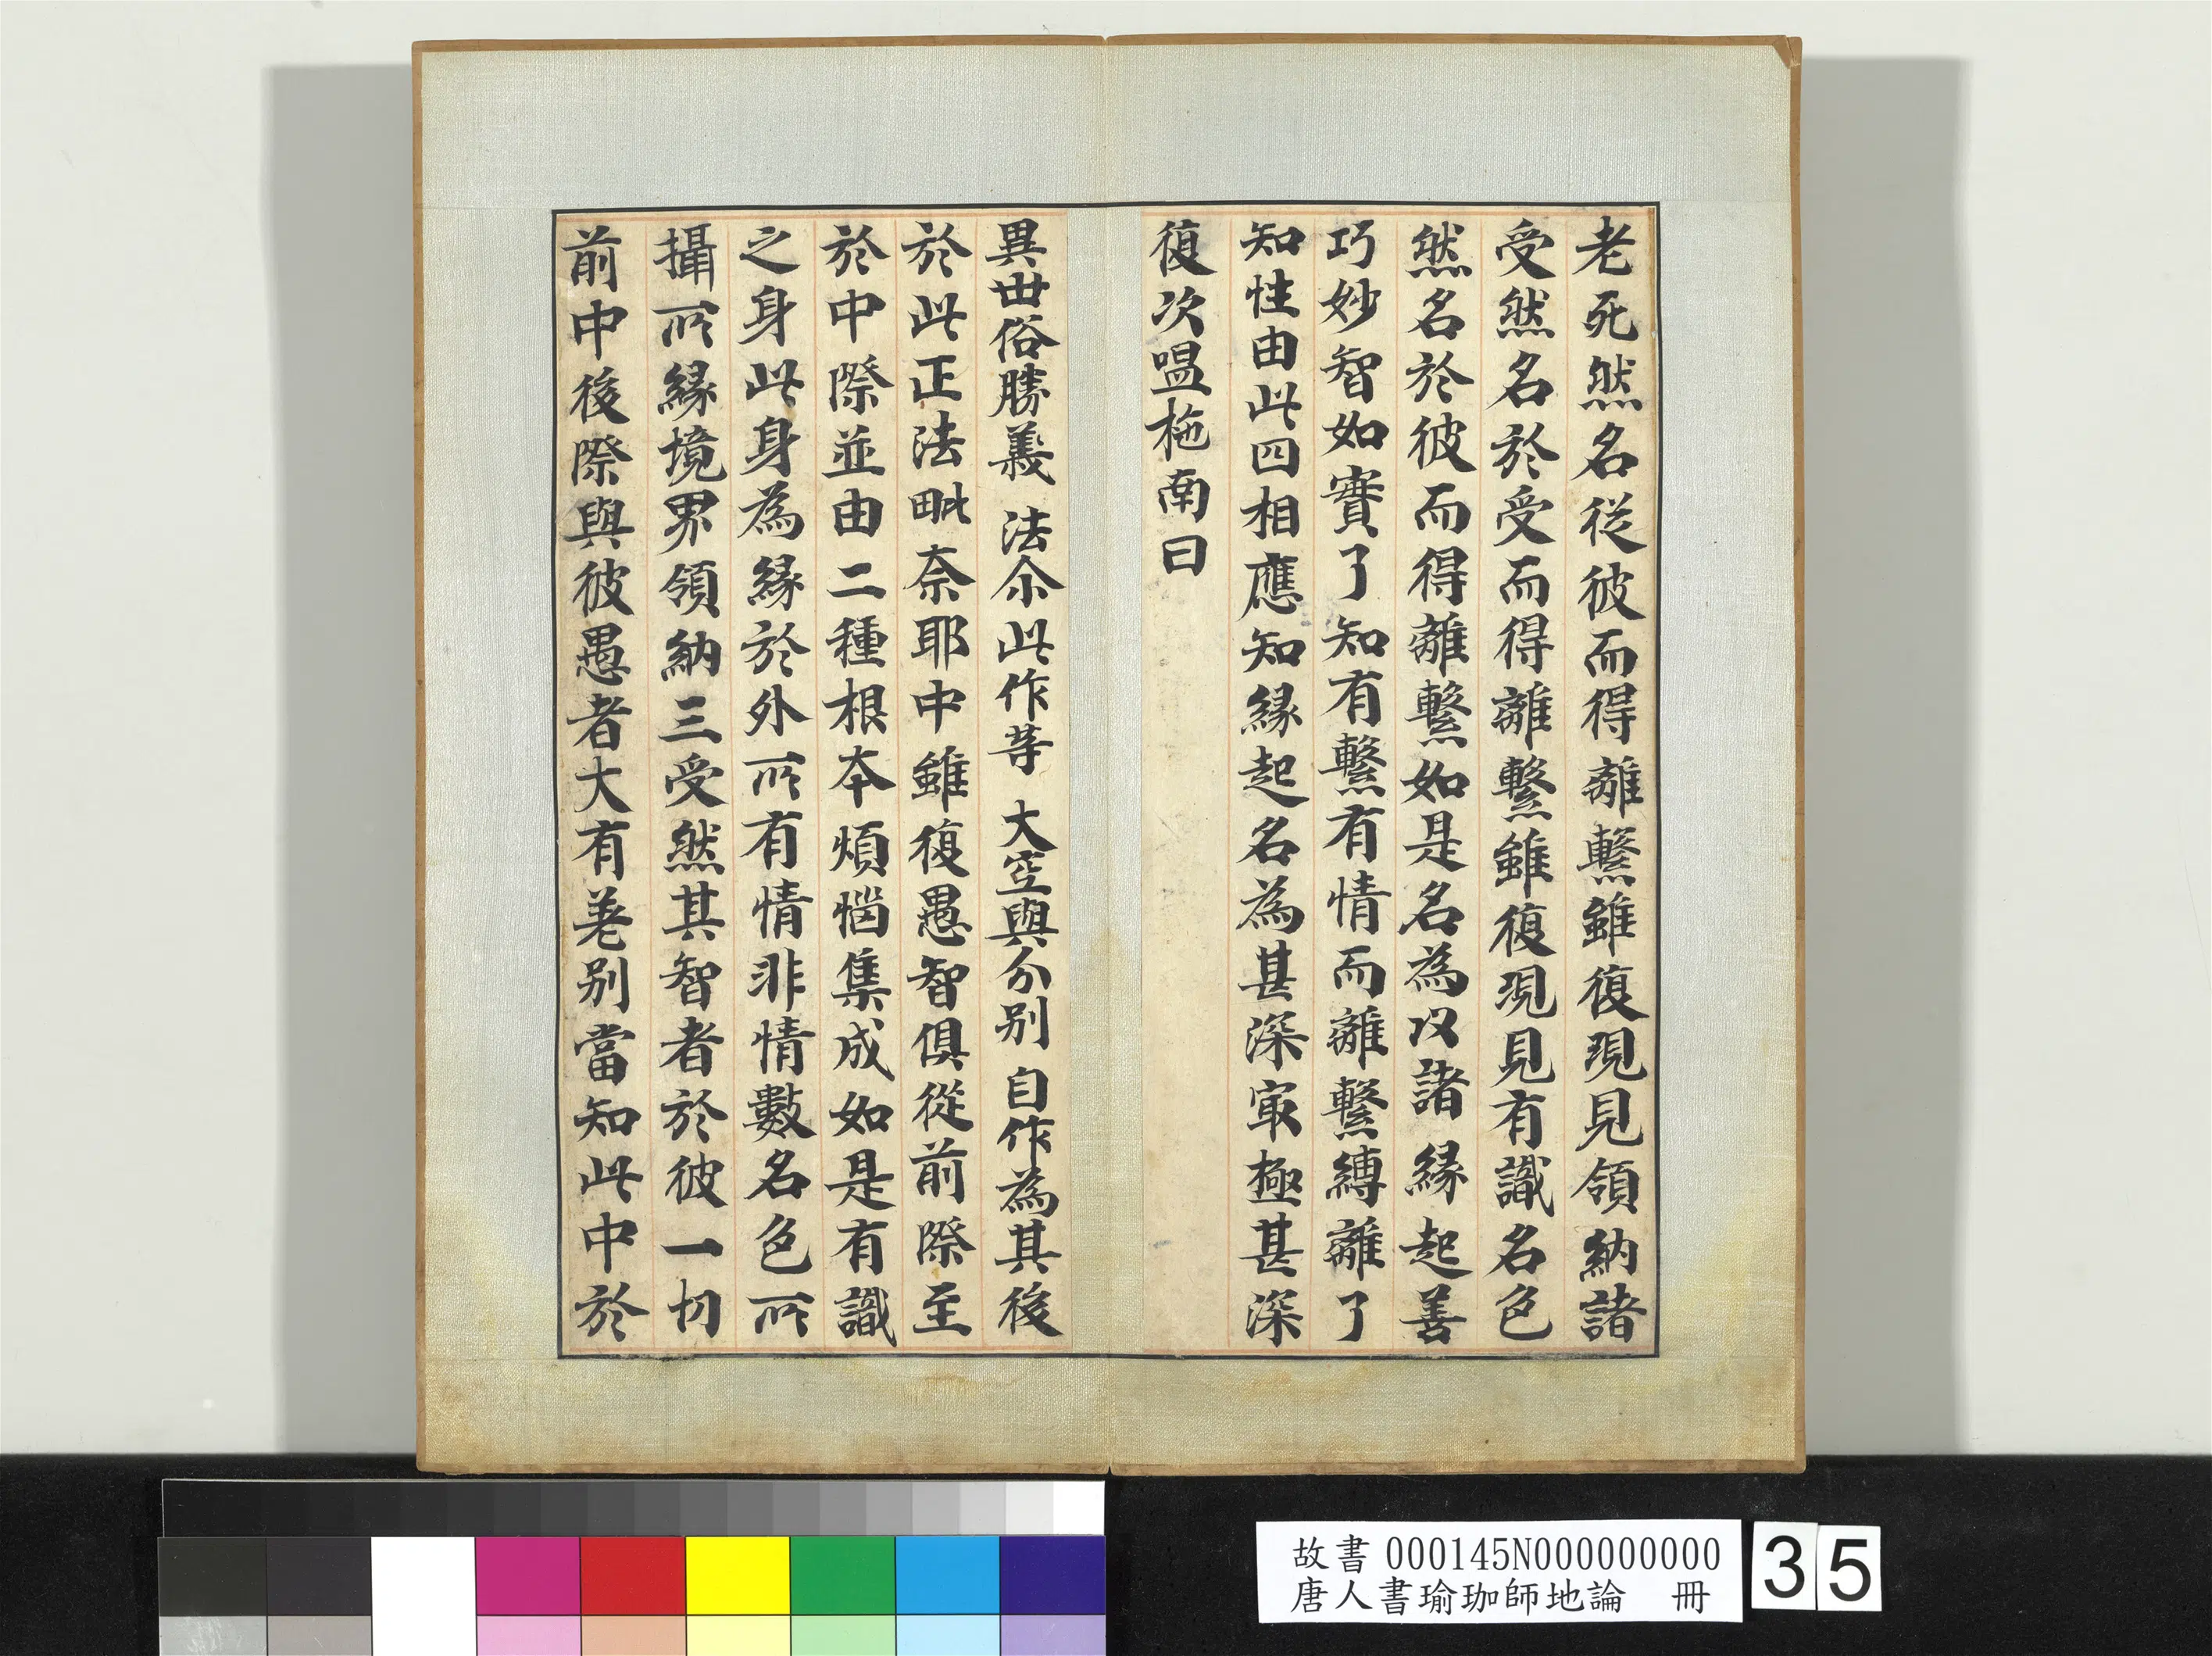 老死然名從彼而得離繫雖復現見領納諸
受然名於受而得離繫雖復現見有識名色
然名於彼而得離繫如是名為以諸緣起善
巧妙智如實了知有繫有情而離繫縛離了
知性由此四相應知緣起名為甚深㝡極甚深
復次嗢柁南曰
異世俗勝義 法尒此作等 大空與分別 自作為其後
於此正法毗奈耶中雖復愚智俱從前際至
於中際並由二種根本煩惱集成如是有識
之身此身為緣於外所有情非情數名色所
攝所緣境界領納三受然其智者於彼一切
前中後際與彼愚者大有差別當知此中於
故書 000145N000000000
唐人書瑜珈師地論 冊
35